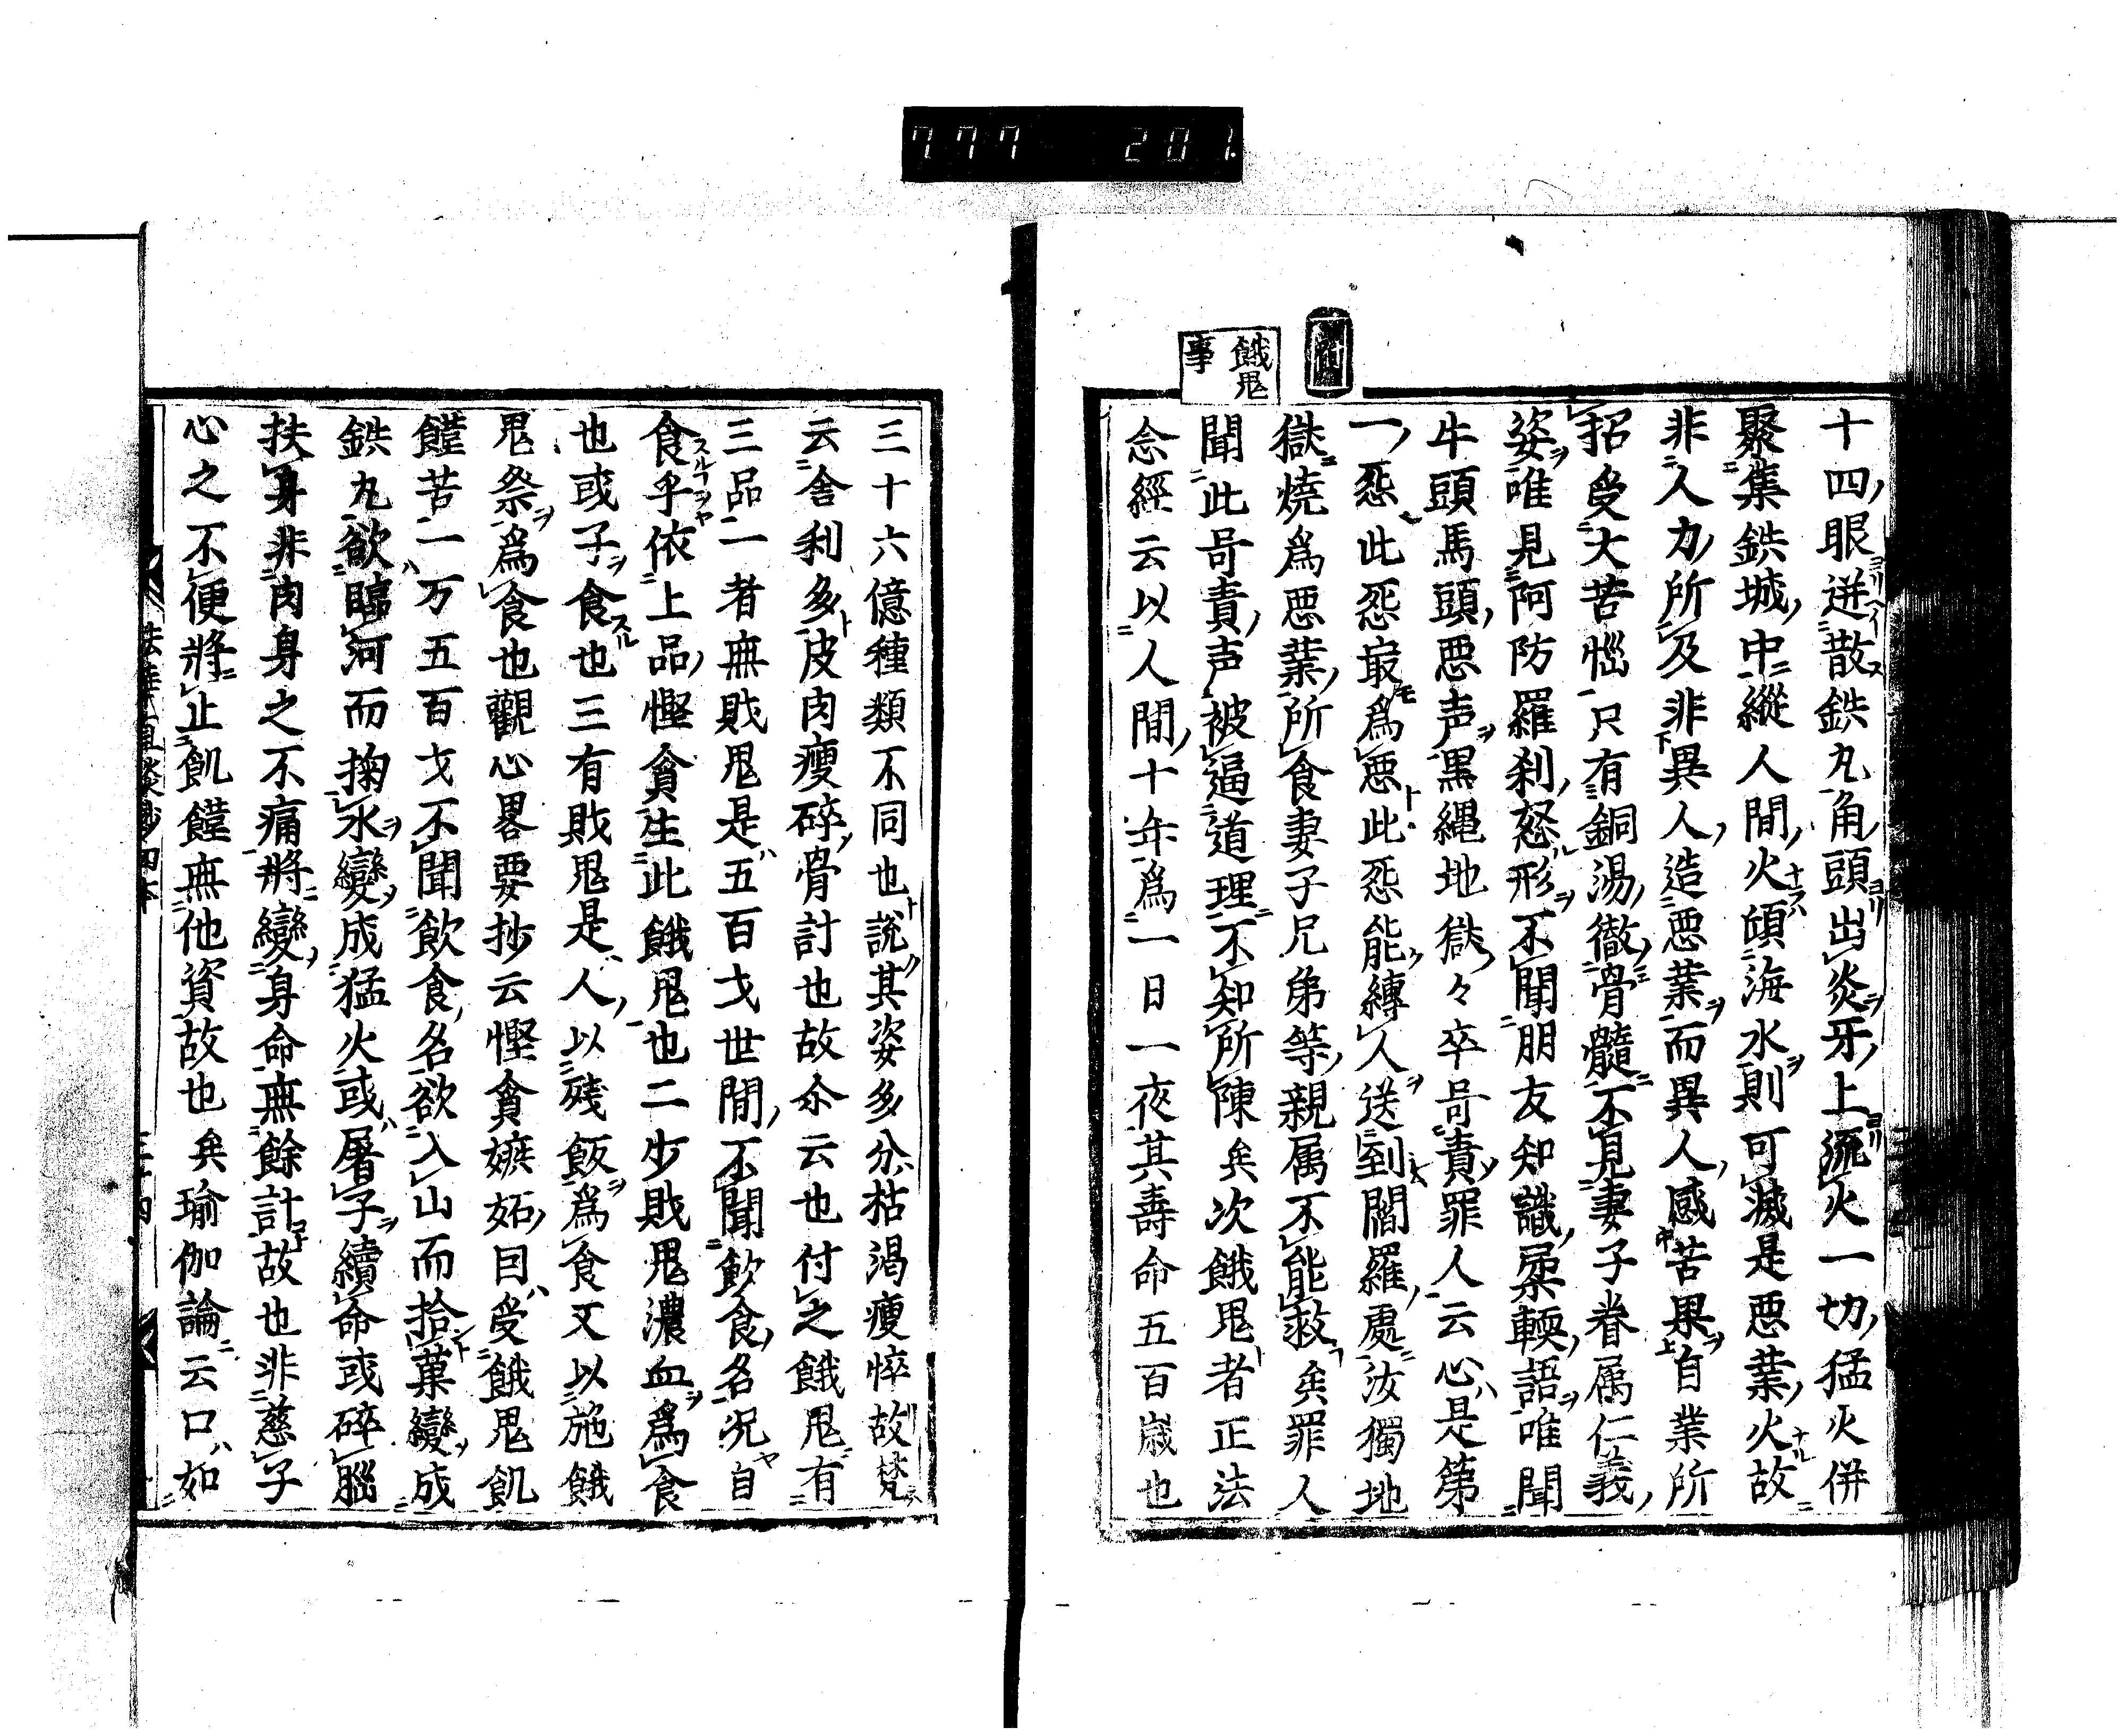 777 201
餓鬼
事
十四眼迸散鉄丸角頭出炎牙上流火一切猛火併
聚集鉄城中縱人間火傾海水則可滅是悪業火故
非人力所及非異人造悪業而異人感苦果自業所
招受大苦悩只有銅湯徹骨髓不見妻子眷属仁義
姿唯見阿防羅刹怒形不聞朋友知識柔輭語唯聞
牛頭馬頭悪声黒縄地獄々卒呵責罪人云心是第
一怨此怨最為悪此怨能縛人送到閻羅處汝獨地
獄焼為悪業所食妻子兄弟等親属不能救矣罪人
聞此呵責声被逼道理不知所陳矣次餓鬼者正法
念經云以人間十年為一日一夜其壽命五百歳也
三十六億種類不同也說其姿多分枯渇痩悴故梵
云舎利多皮肉痩碎骨計也故尒云也付之餓鬼有
三品一者無戝鬼是五百才世間不聞飲食名况自
食乎依上品慳貪生此餓鬼也二少戝鬼濃血為食
也或子食也三有戝鬼是人以残飯為食又以施餓
鬼祭為食也觀心畧要抄云慳貪嫉妬因受餓鬼飢
饉苦一万五百才不聞飲食名欲入山而拾菓變成
鉄丸欲臨河而掬水變成猛火或屠子續命或碎腦
扶身非肉身之不痛將變身命無餘計故也非慈子
心之不便將止飢饉無他資故也矣瑜伽論云口如
法華直談抄四本 三十四